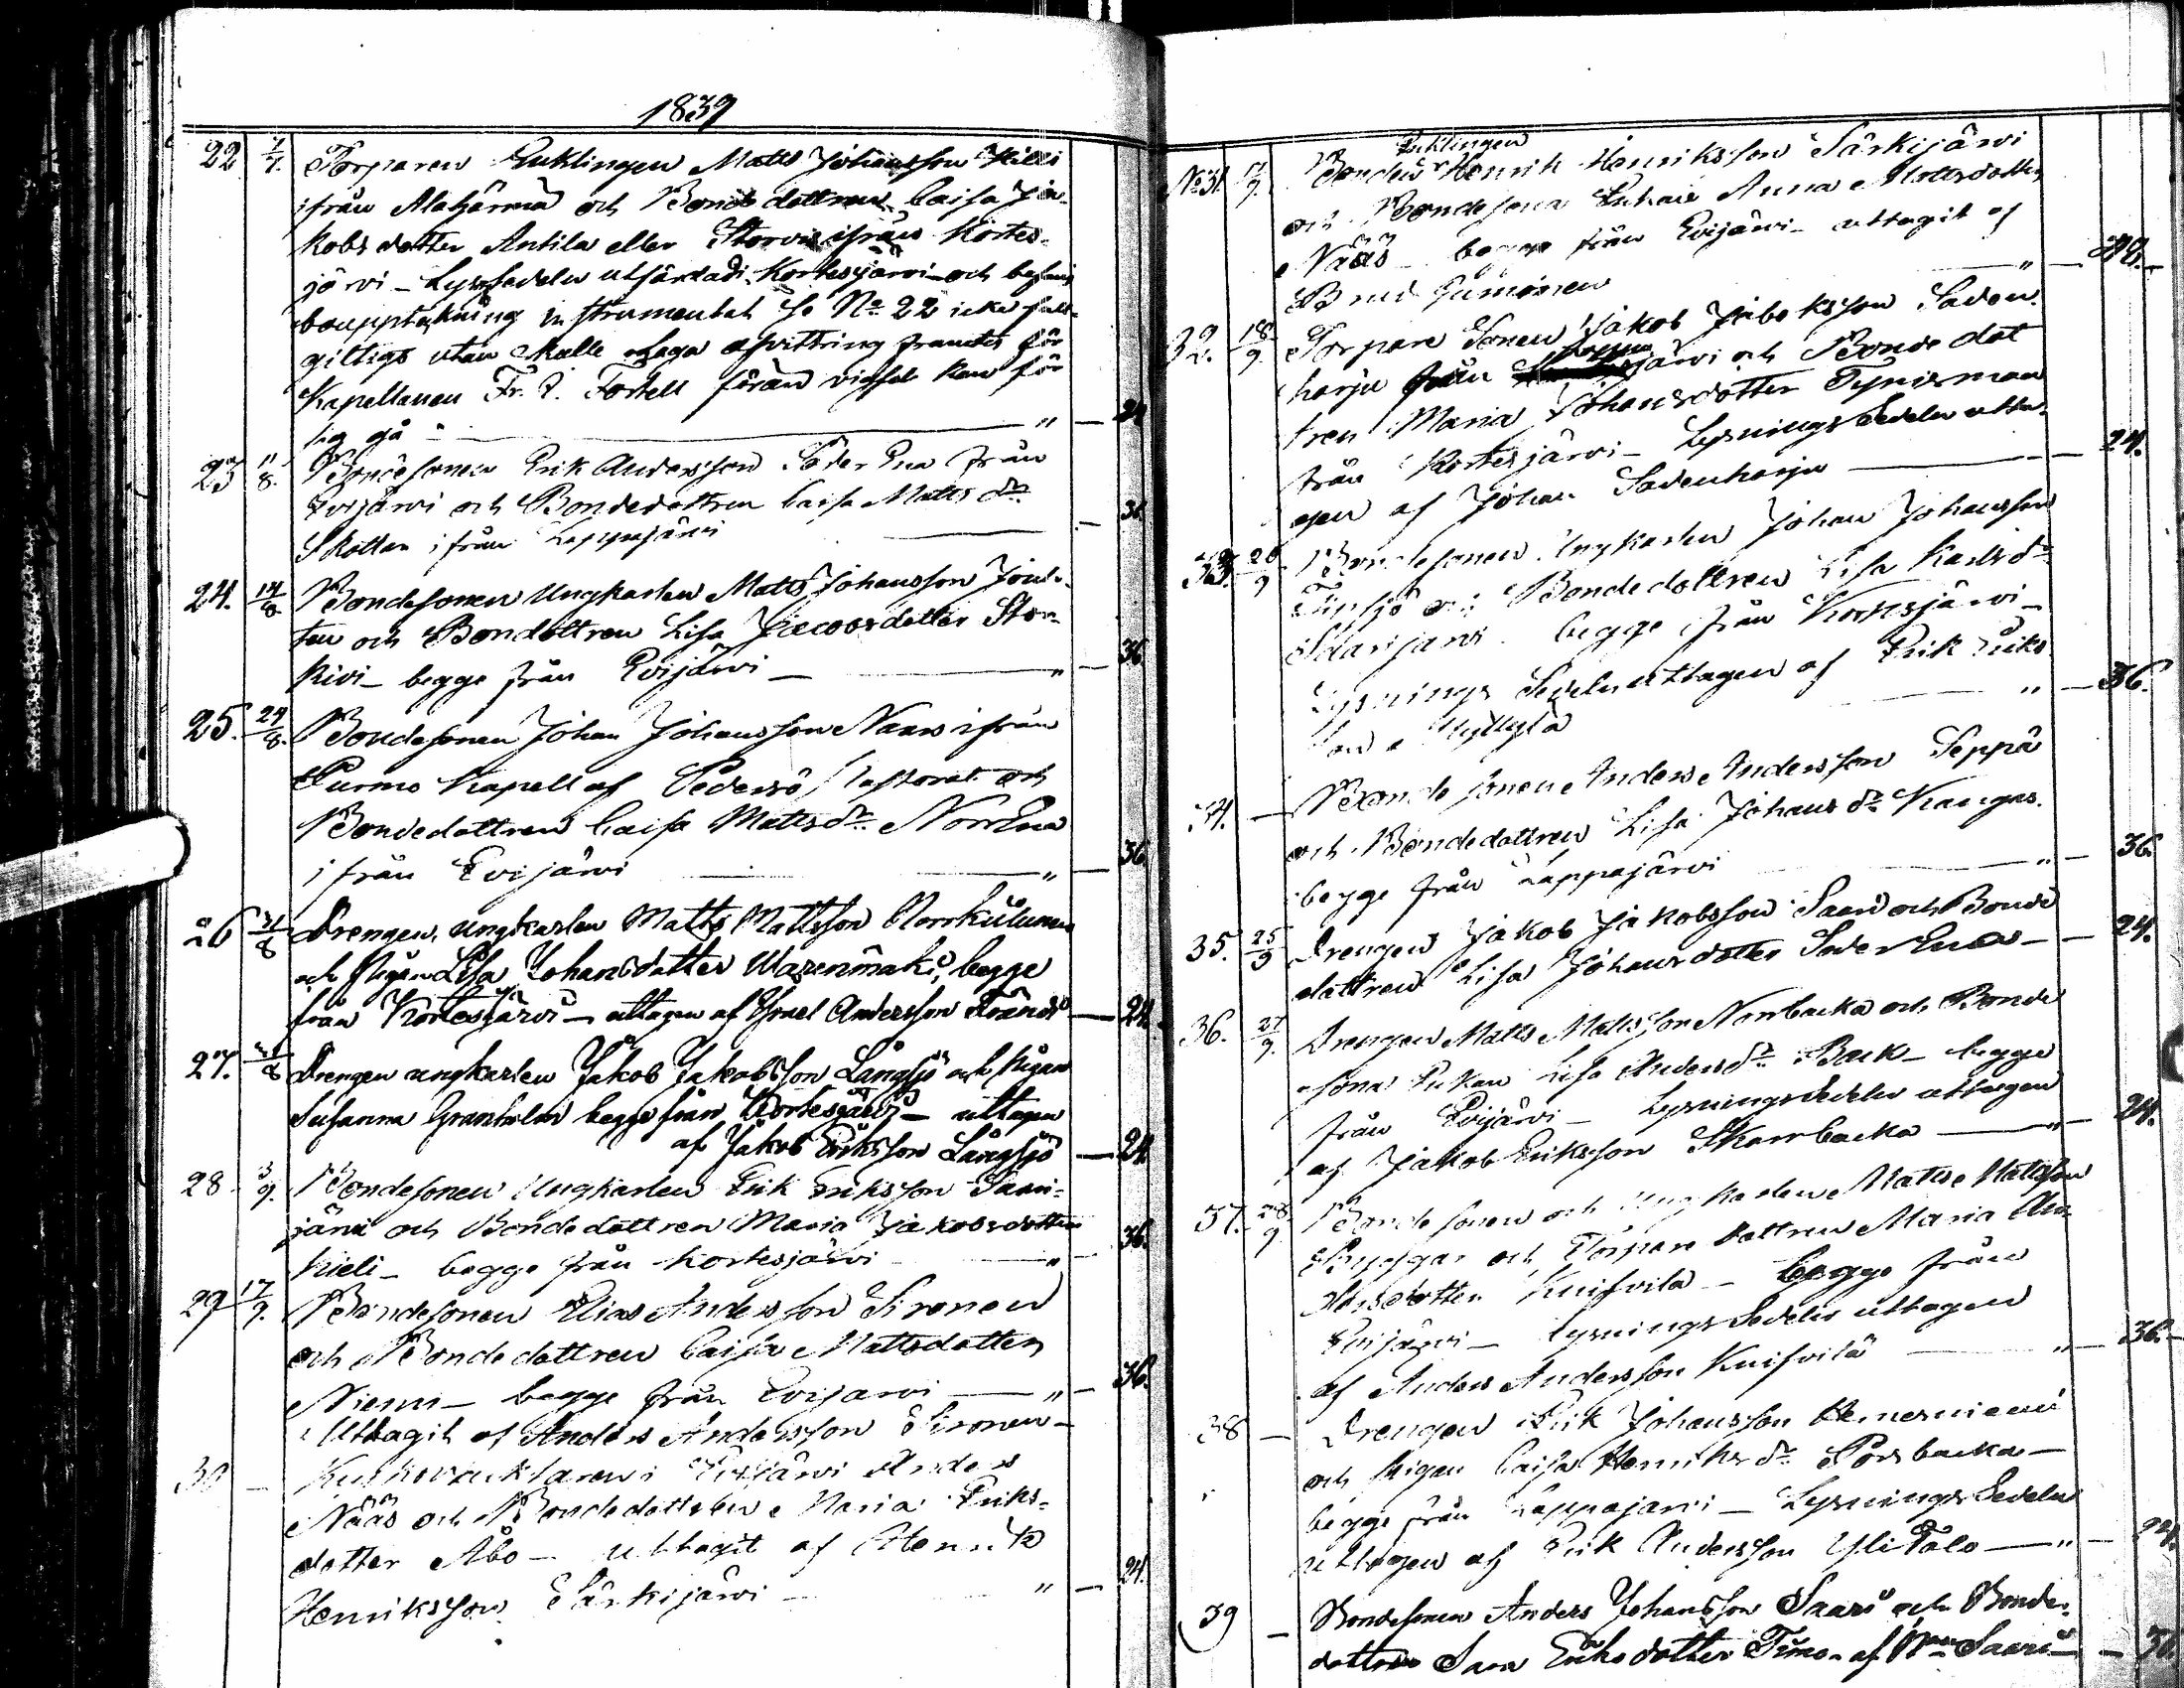 1839
22 7/7. Torparen Enklingen Matts Johansson Killi
ifrån Alahärmä och Bondedottren Caisa Ja-
kobsdotter Antila eller Storvis ifrån Kortes-
järvi - Lysesedeln utfärdad i Kortesjärvi och
bouppteckning instrumentet So No 22 icke full-
giltigt utan skulle laga afvittring framtes för
Kapellanen Fr. Forsell förän vigsel kan för
sig gå " — 24
23 11/8. Bondesonen Erik Andersson Söder Ena från
Evijärvi och Bondedottren Caisa Matts dr
ifrån Lappajärvi — 36.
24. 14/8 Bondesonen Ungkarlen Matts Johansson
och Bondottren Lisa Jacobsdotter Stor-
kivi - begge från Evijärvi — " — 36
25. 24/8. Bondesonen Johan Johansson Naars ifrån
Purmo Kapell af Pedersö Pastorat och
Bondedottren Caisa Mattsdr. Norr Ena
ifrån Evijärvi — " — 36
26 31/8 Drengen, ungkarlen Matts Mattsson
och Pigan Lisa Johansdotter Warenmäki, begge
från Kortesjärvi — uttagen af Israel Andersson — 24.
27. 31/8 Drengen ungkarlen Jakob Jakobsson Långsjö och Pigan
Susanna Granholm begge från Kortesjärvi — uttagen
af Jakob Eriksson Långsjö — 24.
28 3/9. Bondesonen Ungkarlen Erik Eriksson Saari-
järvi och Bondedottren Maria Jakobsdotter
Kieli - begge från Kortesjärvi — " — 36.
29 17/9. Bondesonen Elias Andersson Sironen
och Bondedottren Caisa Mattsdotter
Niemi - begge från Evijärvi — " — 36.
Uttagit af Anders Andersson Sironen -
30 — i Evijärvi Anders
Nääs och Bondedottren Maria Eriks-
dotter Åbo - uttagit af Henrik
Henriksson Särkijärvi — " — 24.
No 31. 17/9. Bonden Enklingen Henrik Henriksson Särkijärvi
och Bondesona Enkan Anna Mattsdotter
Nääs begge från Evijärvi - uttagit af
— "
32. 18/9. Torpare Sonen Jakob Jakobsson Saden-
harju från Lappajärvi och Bondedot
tren Maria Johansdotter
från Kortesjärvi - Lysnings Sedeln utta-
gen af Johan Sadenharju — 24.
33. 20/9 Bondesonen Ungkarlen Johan Johansson
och Bondedottren Lisa Karlsdr
Saarijärvi begge från Kortesjärvi -
Lysnings Sedeln uttagen af Erik Eriks
son Myllylä " — 36.
34. — Bonde sonen Anders Andersson Seppä
och Bondedottren Lisa Johans dr Kangas.
begge från Lappajärvi " — 36.
35. 25/9 Drengen Jakob Jakobsson Saari och Bonde
dottren Lisa Johansdotter Söder Ena — 24.
36. 27/9. Drengen Matts Mattsson Norrbacka och Bonde
sona Enkan Lisa Anders dr Back - begge
från Evijärvi - Lysningssedeln uttagen
af Jakob Eriksson Skarrbacka — " — 24.
37. 28/9 Bonde sonen och Ungkarlen Matts Mattsson
och Torpare dottren Maria An-
dersdotter Knifvilä - begge från
Evijärvi - lysnings Sedeln uttagen
af Anders Andersson Knifvilä — " — 36.
38 — Drengen Erik Johansson
och Pigan Caisa Henriks dr Porsbacka —
begge från Lappajärvi — Lysnings Sedeln
uttagen af Erik Andersson Yli Talo — " — 24.
39 — Bondesonen Anders Johansson Saari och Bonde-
dottren Sara Eriksdotter Timo - af Saari — 36